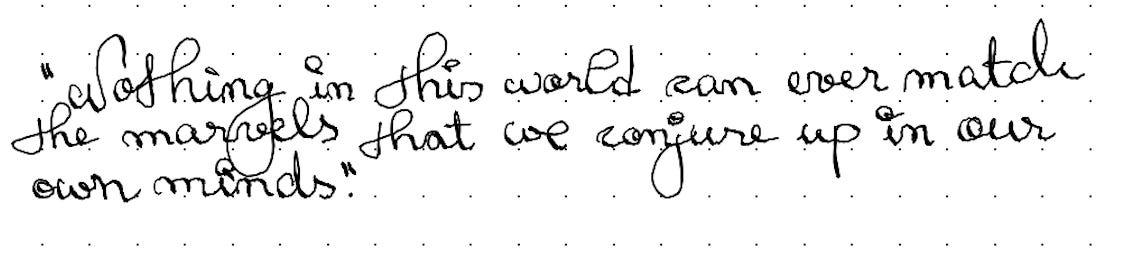 "Nothing in this world can ever match
the marvels that we conjure up in our
own minds."